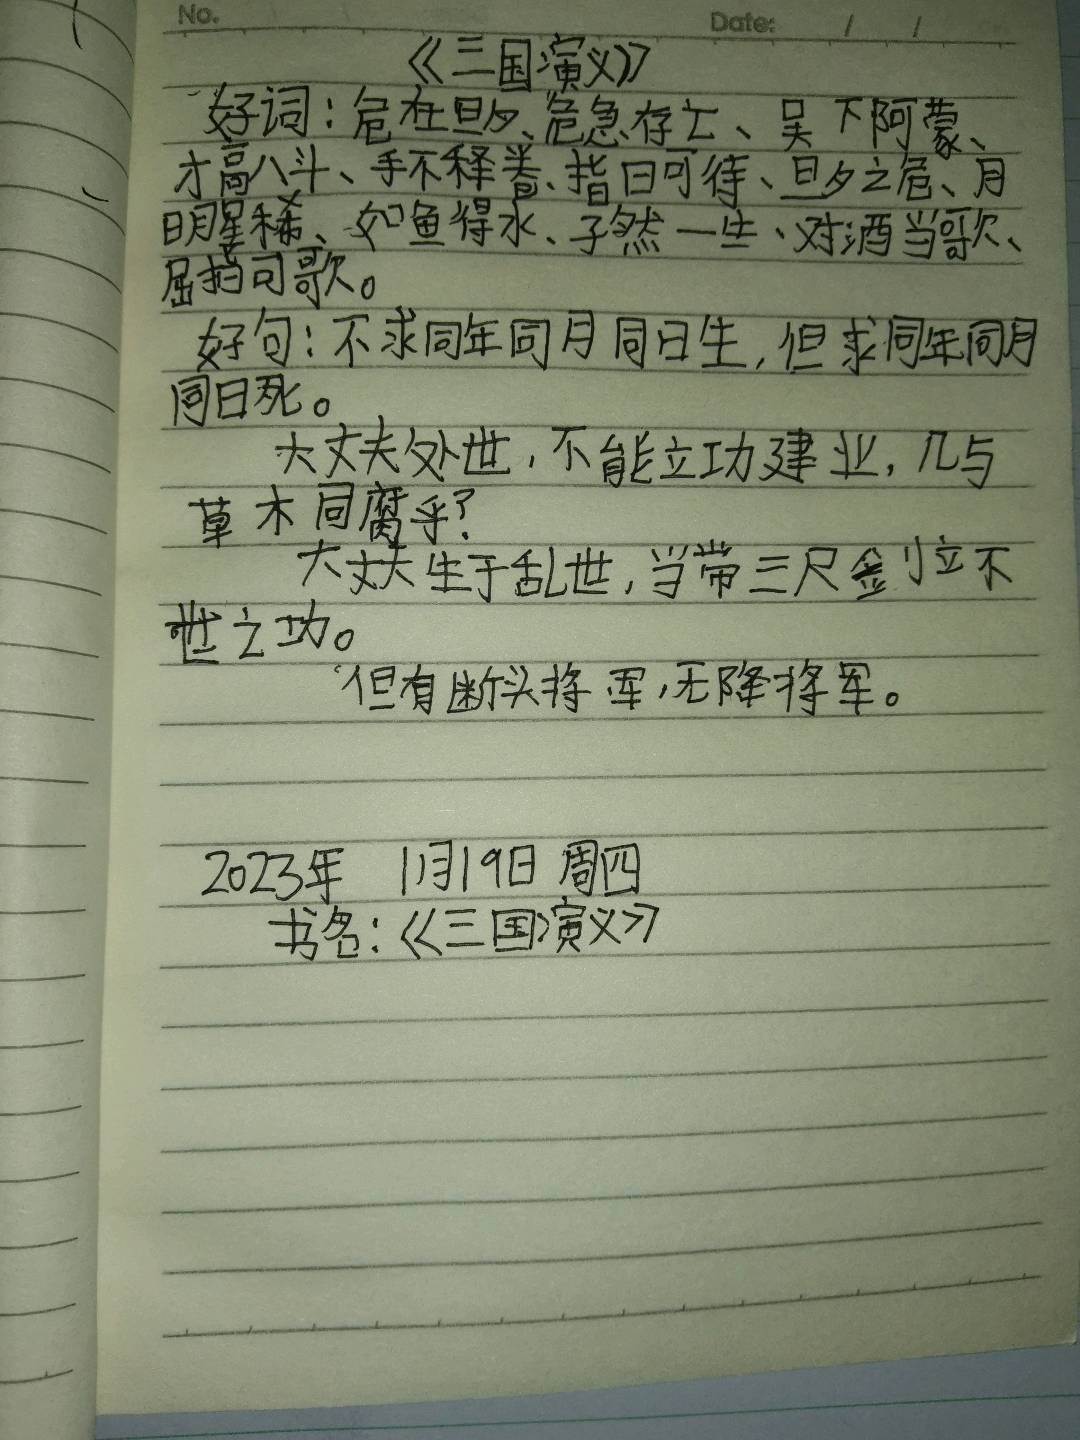 No. Date: / /
《三国演义》
好词：危在旦夕、危急存亡、吴下阿蒙、
才高八斗、手不释卷、指日可待、旦夕之危、月
明星稀、如鱼得水、孑然一生、对酒当歌、
屈指可歌。
好句：不求同年同月同日生，但求同年同月
同日死。
大丈夫处世，不能立功建业，几与
草木同腐乎？
大丈夫生于乱世，当带三尺金刂立不
世之功。
但有断头将军，无降将军。
2023年 1月19日 周四
书名：《三国演义》